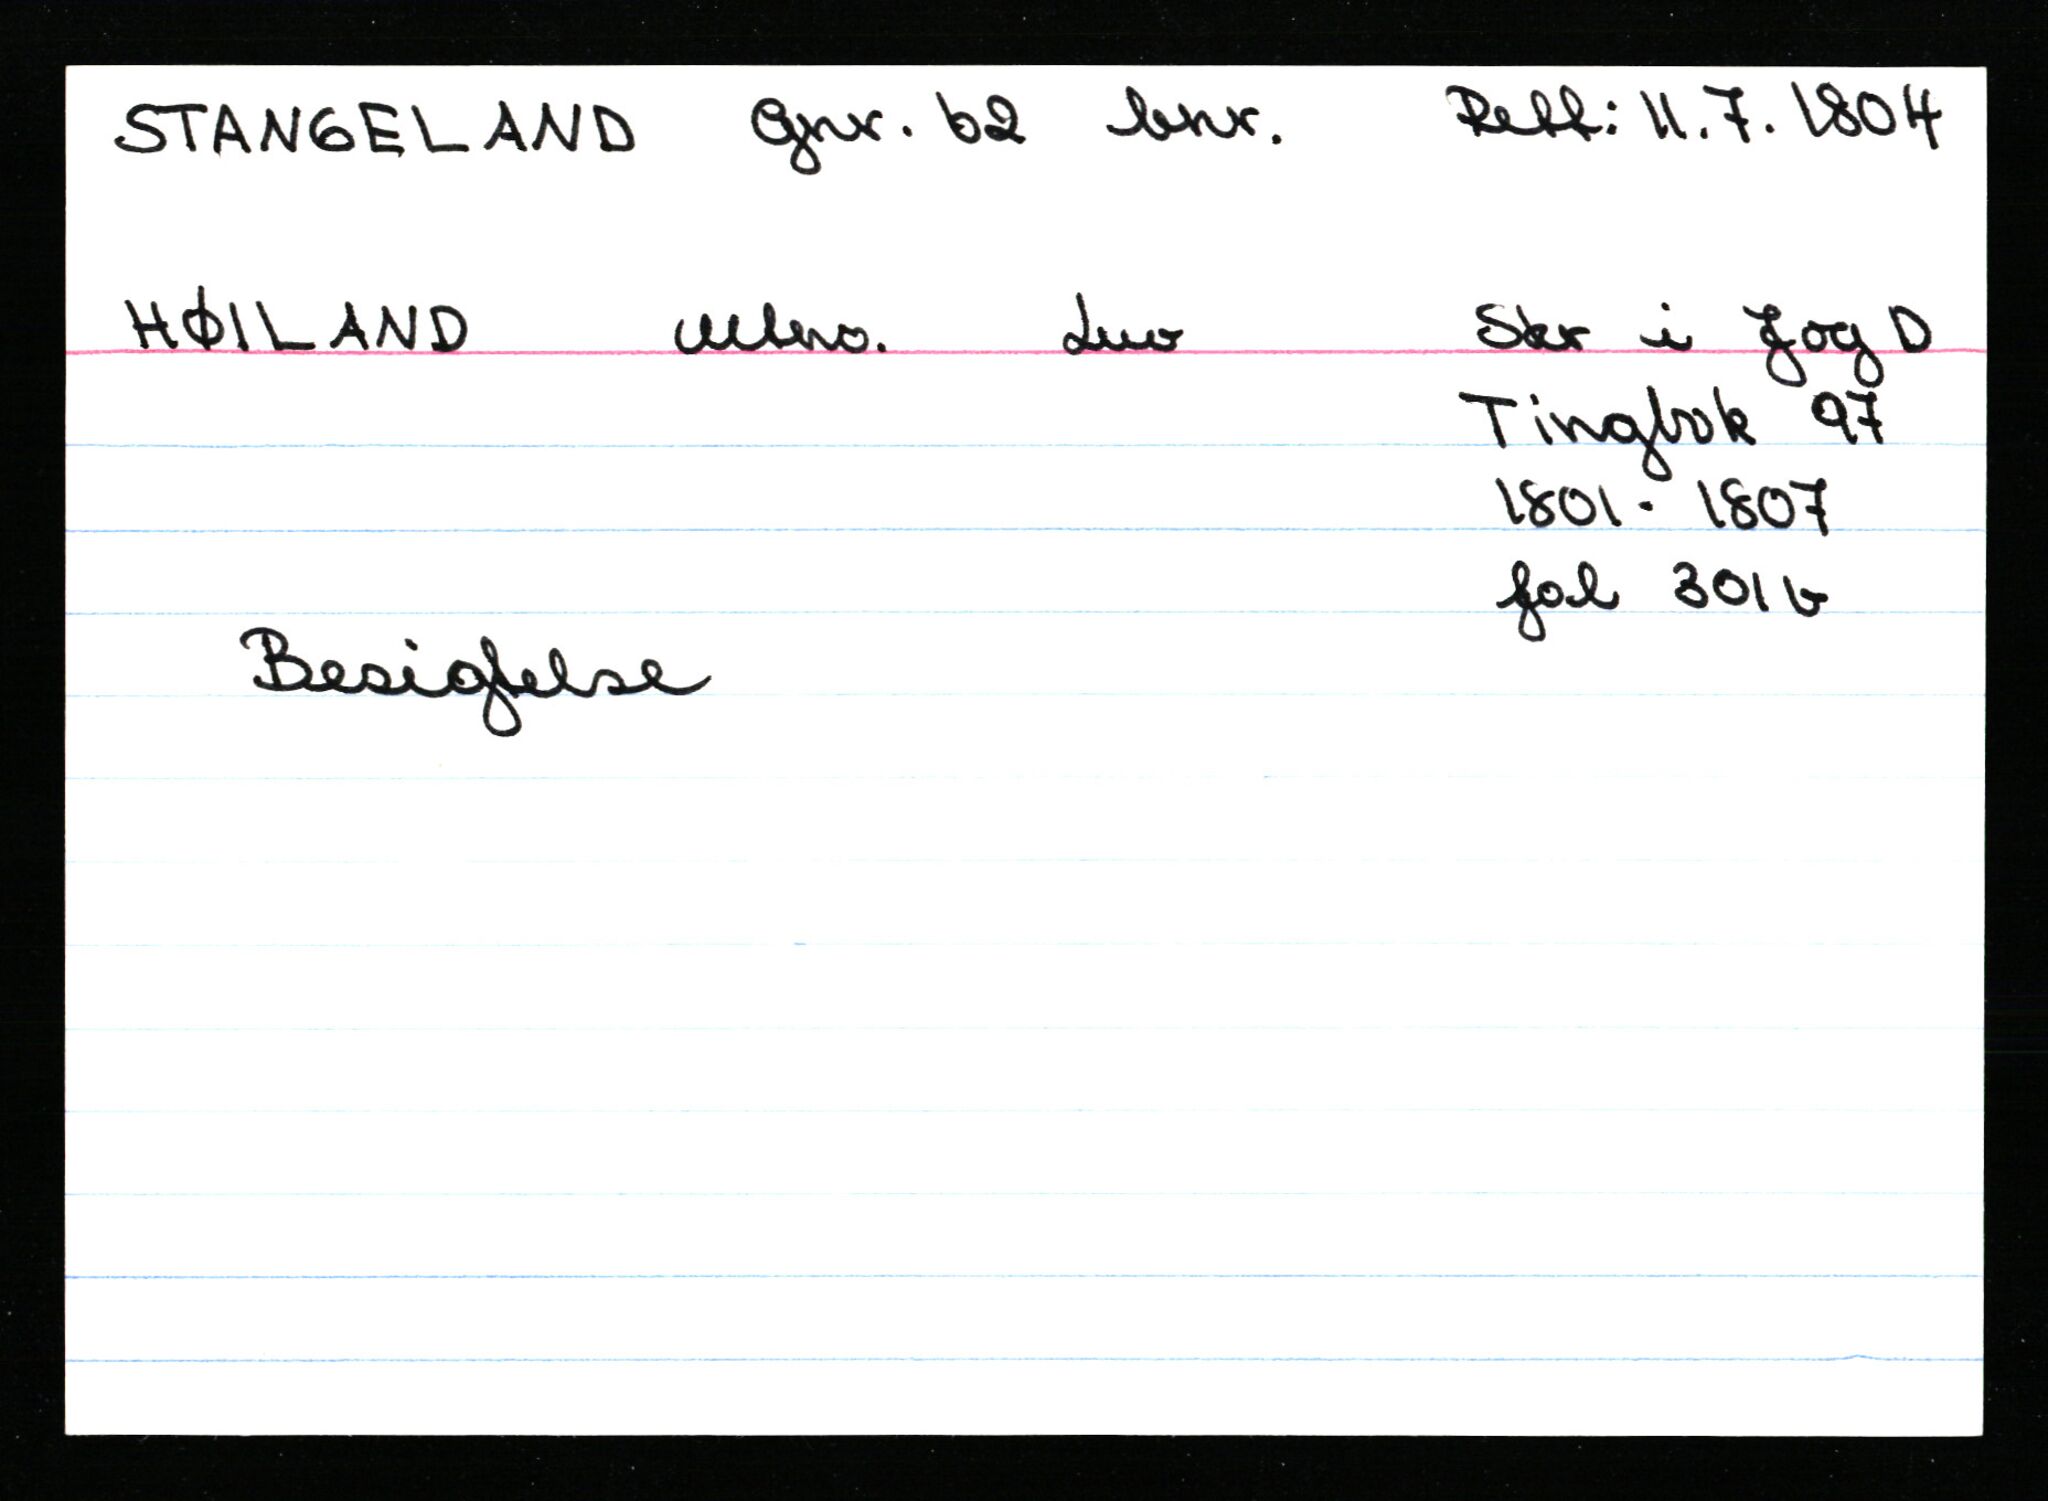 STANGELAND Gnr. 62 bnr. Rett: 11.7.1804
HØILAND Skr i J og D
Tingbok 97
1801 - 1807
fol 301b
Besigtelse